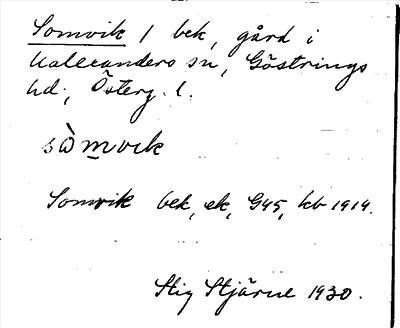 Somvik / bek, gård i
Valexanders sn, Göstrings
hd., Österg. l.
sòmvik
Somvik bek, ek, G45, kb 1914.
Stig Stjärne 1930.